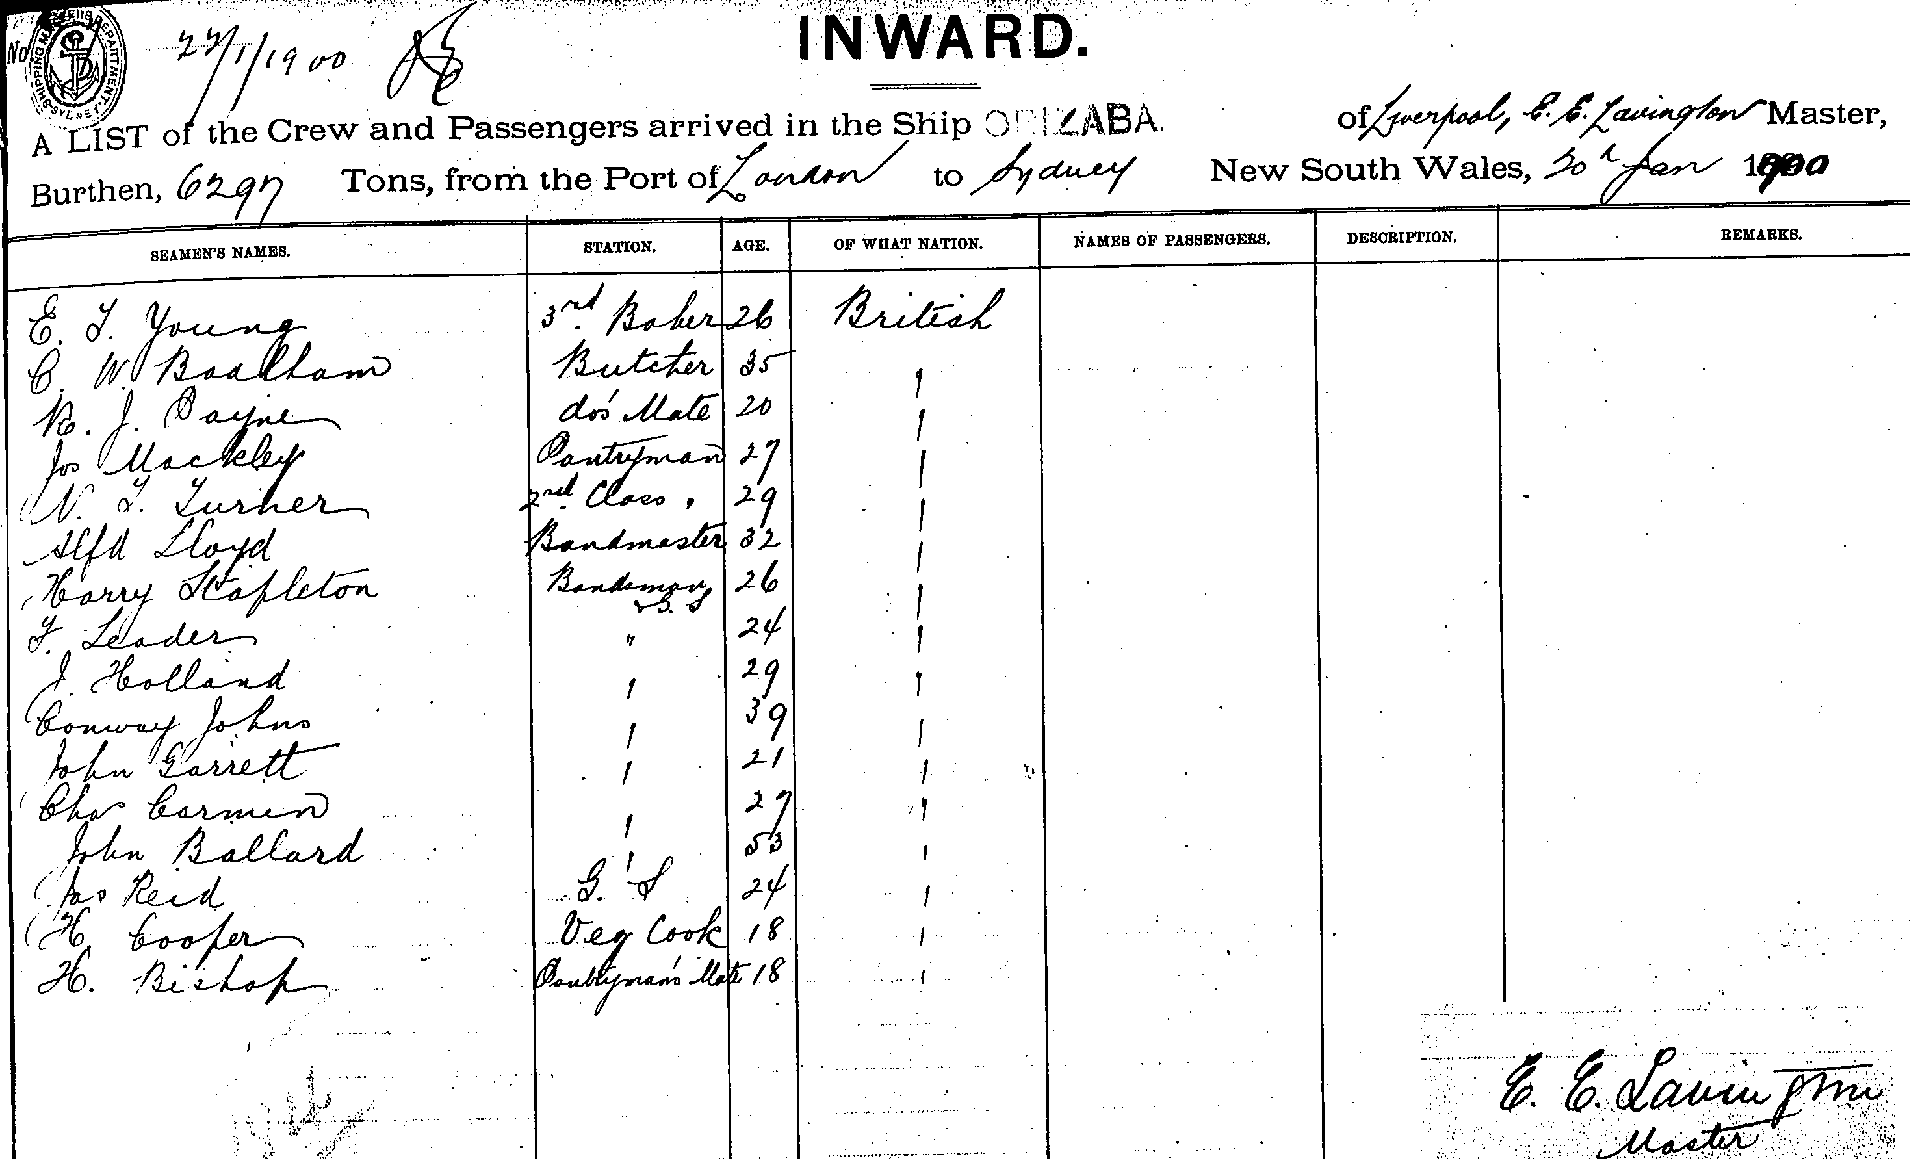 No
22/1/1900
INWARD.
A LIST of the Crew and Passengers arrived in the Ship ORIZABA. of Liverpool, E. E. Lavington Master,
Burthen, 6297 Tons, from the Port of London to Sydney New South Wales, 20th Jan 1900
SEAMEN'S NAMES. STATION. AGE. OF WHAT NATION. NAMES OF PASSENGERS. DESCRIPTION. REMARKS.
E. T. Young 3rd. Baker 26 British
C. W. Badham Butcher 35 "
R. J. Payne do's Mate 20 "
Jos Mackley Pantryman 27 "
N. T. Turner 2nd. Class " 29 "
Alfd Lloyd Bandmaster 32 "
Harry Stapleton Bandsman & G. S 26 "
F. Leader " 24 "
J. Holland " 29 "
Conway Johns " 39 "
John Garrett " 21 "
Chas Carmen " 27 "
John Ballard " 53 "
Jas Reid G. S 24 "
H. Cooper Veg Cook 18 "
H. Bishop Pantryman's Mate 18 "
E. E. Lavington
Master